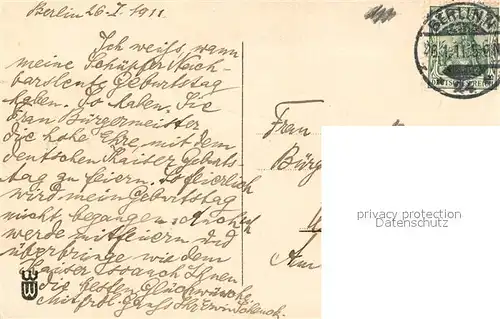 Berlin 26.I.1911.
Ich weiss, wann
meine Schüpfer Nach-
barsleute Geburtstag
haben. So haben Sie
Frau Bürgermeister
die hohe Ehre, mit dem
deutschen Kaiser Geburts-
tag zu feiern. So feierlich
wird mein Geburtstag
nicht begangen. Auch ich
werde mitfeiern und
überbringe wie dem
Kaiser so auch Ihnen
die besten Glückwünsche.
Mit frdl. Gruss Ihr Erwin
BERLIN
26.1.11.
DEUTSCHES REICH
Frau
Bürg
Am
privacy protection
Datenschutz